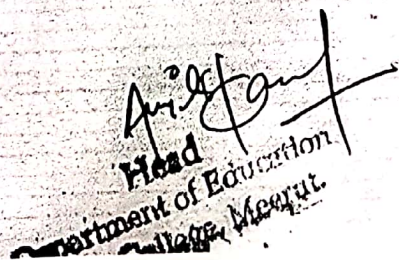 Head
Department of Education
College, Meerut.